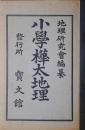 地理研究會編纂
小學樺太地理
發行所 寶文館